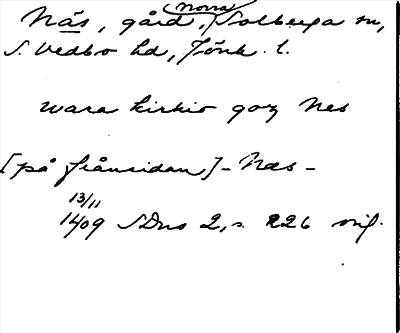 Näs, gård, Norra Solberga sn,
S. Vedbo hd, Jönk. l.
wara kirkio goz Nes
[på frånsidan] - Næs -
13/11
1409 SDns 2, s. 226 orig.